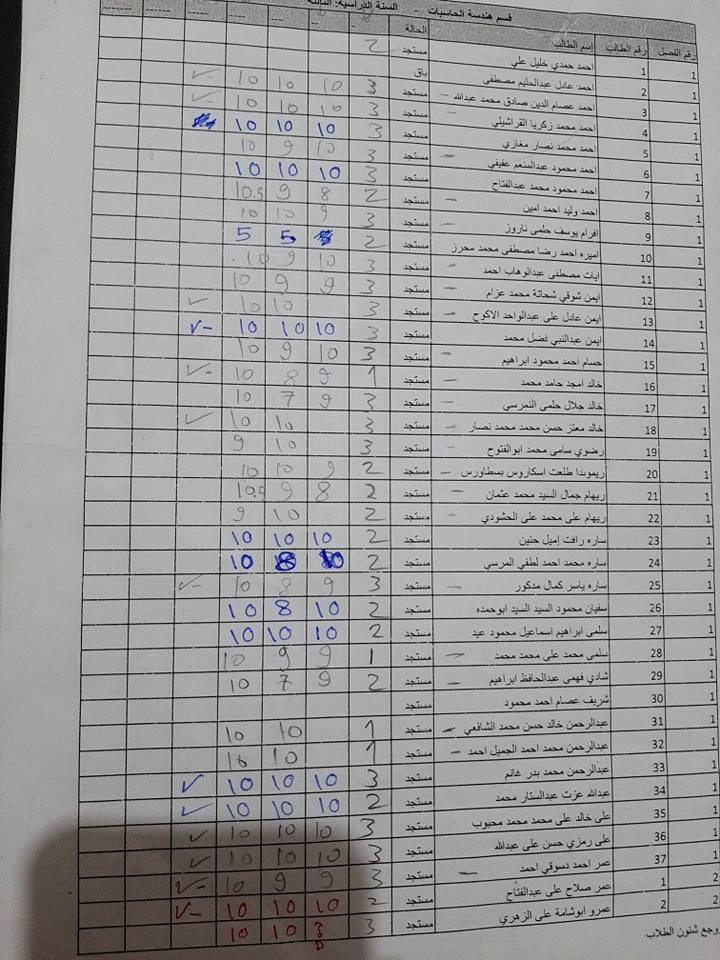 قسم هندسة الحاسبات - السنة الدراسية: الثالثة
رقم الفصل رقم الطالب إسم الطالب الحالة
1 1 احمد حمدي خليل علي مستجد 2
1 2 احمد عادل عبدالحليم مصطفى باق
1 3 احمد عصام الدين صادق محمد عبدالله مستجد 3 10 10 10 ✓
1 4 احمد محمد زكريا القراشيلي مستجد 3 10 10 10 ✓
1 5 احمد محمد نصار مغازي مستجد 3 10 10 10
1 6 احمد محمود عبدالمنعم عفيفي مستجد 3 10 9 10
1 7 احمد محمود محمد عبدالفتاح مستجد 3 10 10 10
1 8 احمد وليد احمد امين مستجد 2 8 9 10.5
1 9 افرام يوسف حلمى ناروز مستجد 3 9 10 10
1 10 اميره احمد رضا مصطفى محمد محرز مستجد 2 5 5
1 11 ايات مصطفى عبدالوهاب احمد مستجد 3 10 9 10
1 12 ايمن شوقي شحاتة محمد عزام مستجد 3 9 9 10
1 13 ايمن عادل على عبدالواحد الاكوح مستجد 3 10 10 ✓
1 14 ايمن عبدالنبي فضل محمد مستجد 3 10 10 10 ✓
1 15 حسام احمد محمود ابراهيم مستجد 3 10 9 10
1 16 خالد امجد حامد محمد مستجد 1 9 8 10 ✓
1 17 خالد جلال حلمى النمرسي مستجد 3 9 7 10
1 18 خالد معتز حسن محمد محمد نصار مستجد 3 10 10 ✓
1 19 رضوي سامى محمد ابوالفتوح مستجد 3 10 9
1 20 ريموندا طلعت اسكاروس بسطاورس مستجد 2 9 10 10
1 21 ريهام جمال السيد محمد عثمان مستجد 2 8 9 10.5
1 22 ريهام على محمد على الحشودي مستجد 2 10 9
1 23 ساره رافت إميل حنين مستجد 2 10 10 10
1 24 ساره محمد احمد لطفي المرسي مستجد 2 10 8 10
1 25 ساره ياسر كمال مدكور مستجد 3 9 8 10 ✓
1 26 سفيان محمود السيد السيد ابوحمده مستجد 2 10 8 10
1 27 سلمى ابراهيم اسماعيل محمود عيد مستجد 2 10 10 10
1 28 سلمى محمد على محمد محمد مستجد 1 9 9 10
1 29 شادي فهمى عبدالحافظ ابراهيم مستجد 2 9 7 10
1 30 شريف عصام احمد محمود مستجد
1 31 عبدالرحمن خالد حسن محمد الشافعي مستجد 1 10 10
1 32 عبدالرحمن محمد احمد الجميل احمد مستجد 1 10 10
1 33 عبدالرحمن محمد بدر غانم مستجد 3 10 10 10 ✓
1 34 عبدالله عزت عبدالستار محمد مستجد 2 10 10 10 ✓
1 35 على خالد على محمد محمد محبوب مستجد 3 10 10 10 ✓
1 36 على رمزي حسن على عبدالله مستجد 3 10 10 10 ✓
1 37 عمر احمد دسوقي احمد مستجد 3 9 9 10 ✓
2 1 عمر صلاح على عبدالفتاح مستجد 2 10 10 10 ✓
2 2 عمرو ابوشامة على الزهري مستجد 3 10 10
وجع شئون الطلاب